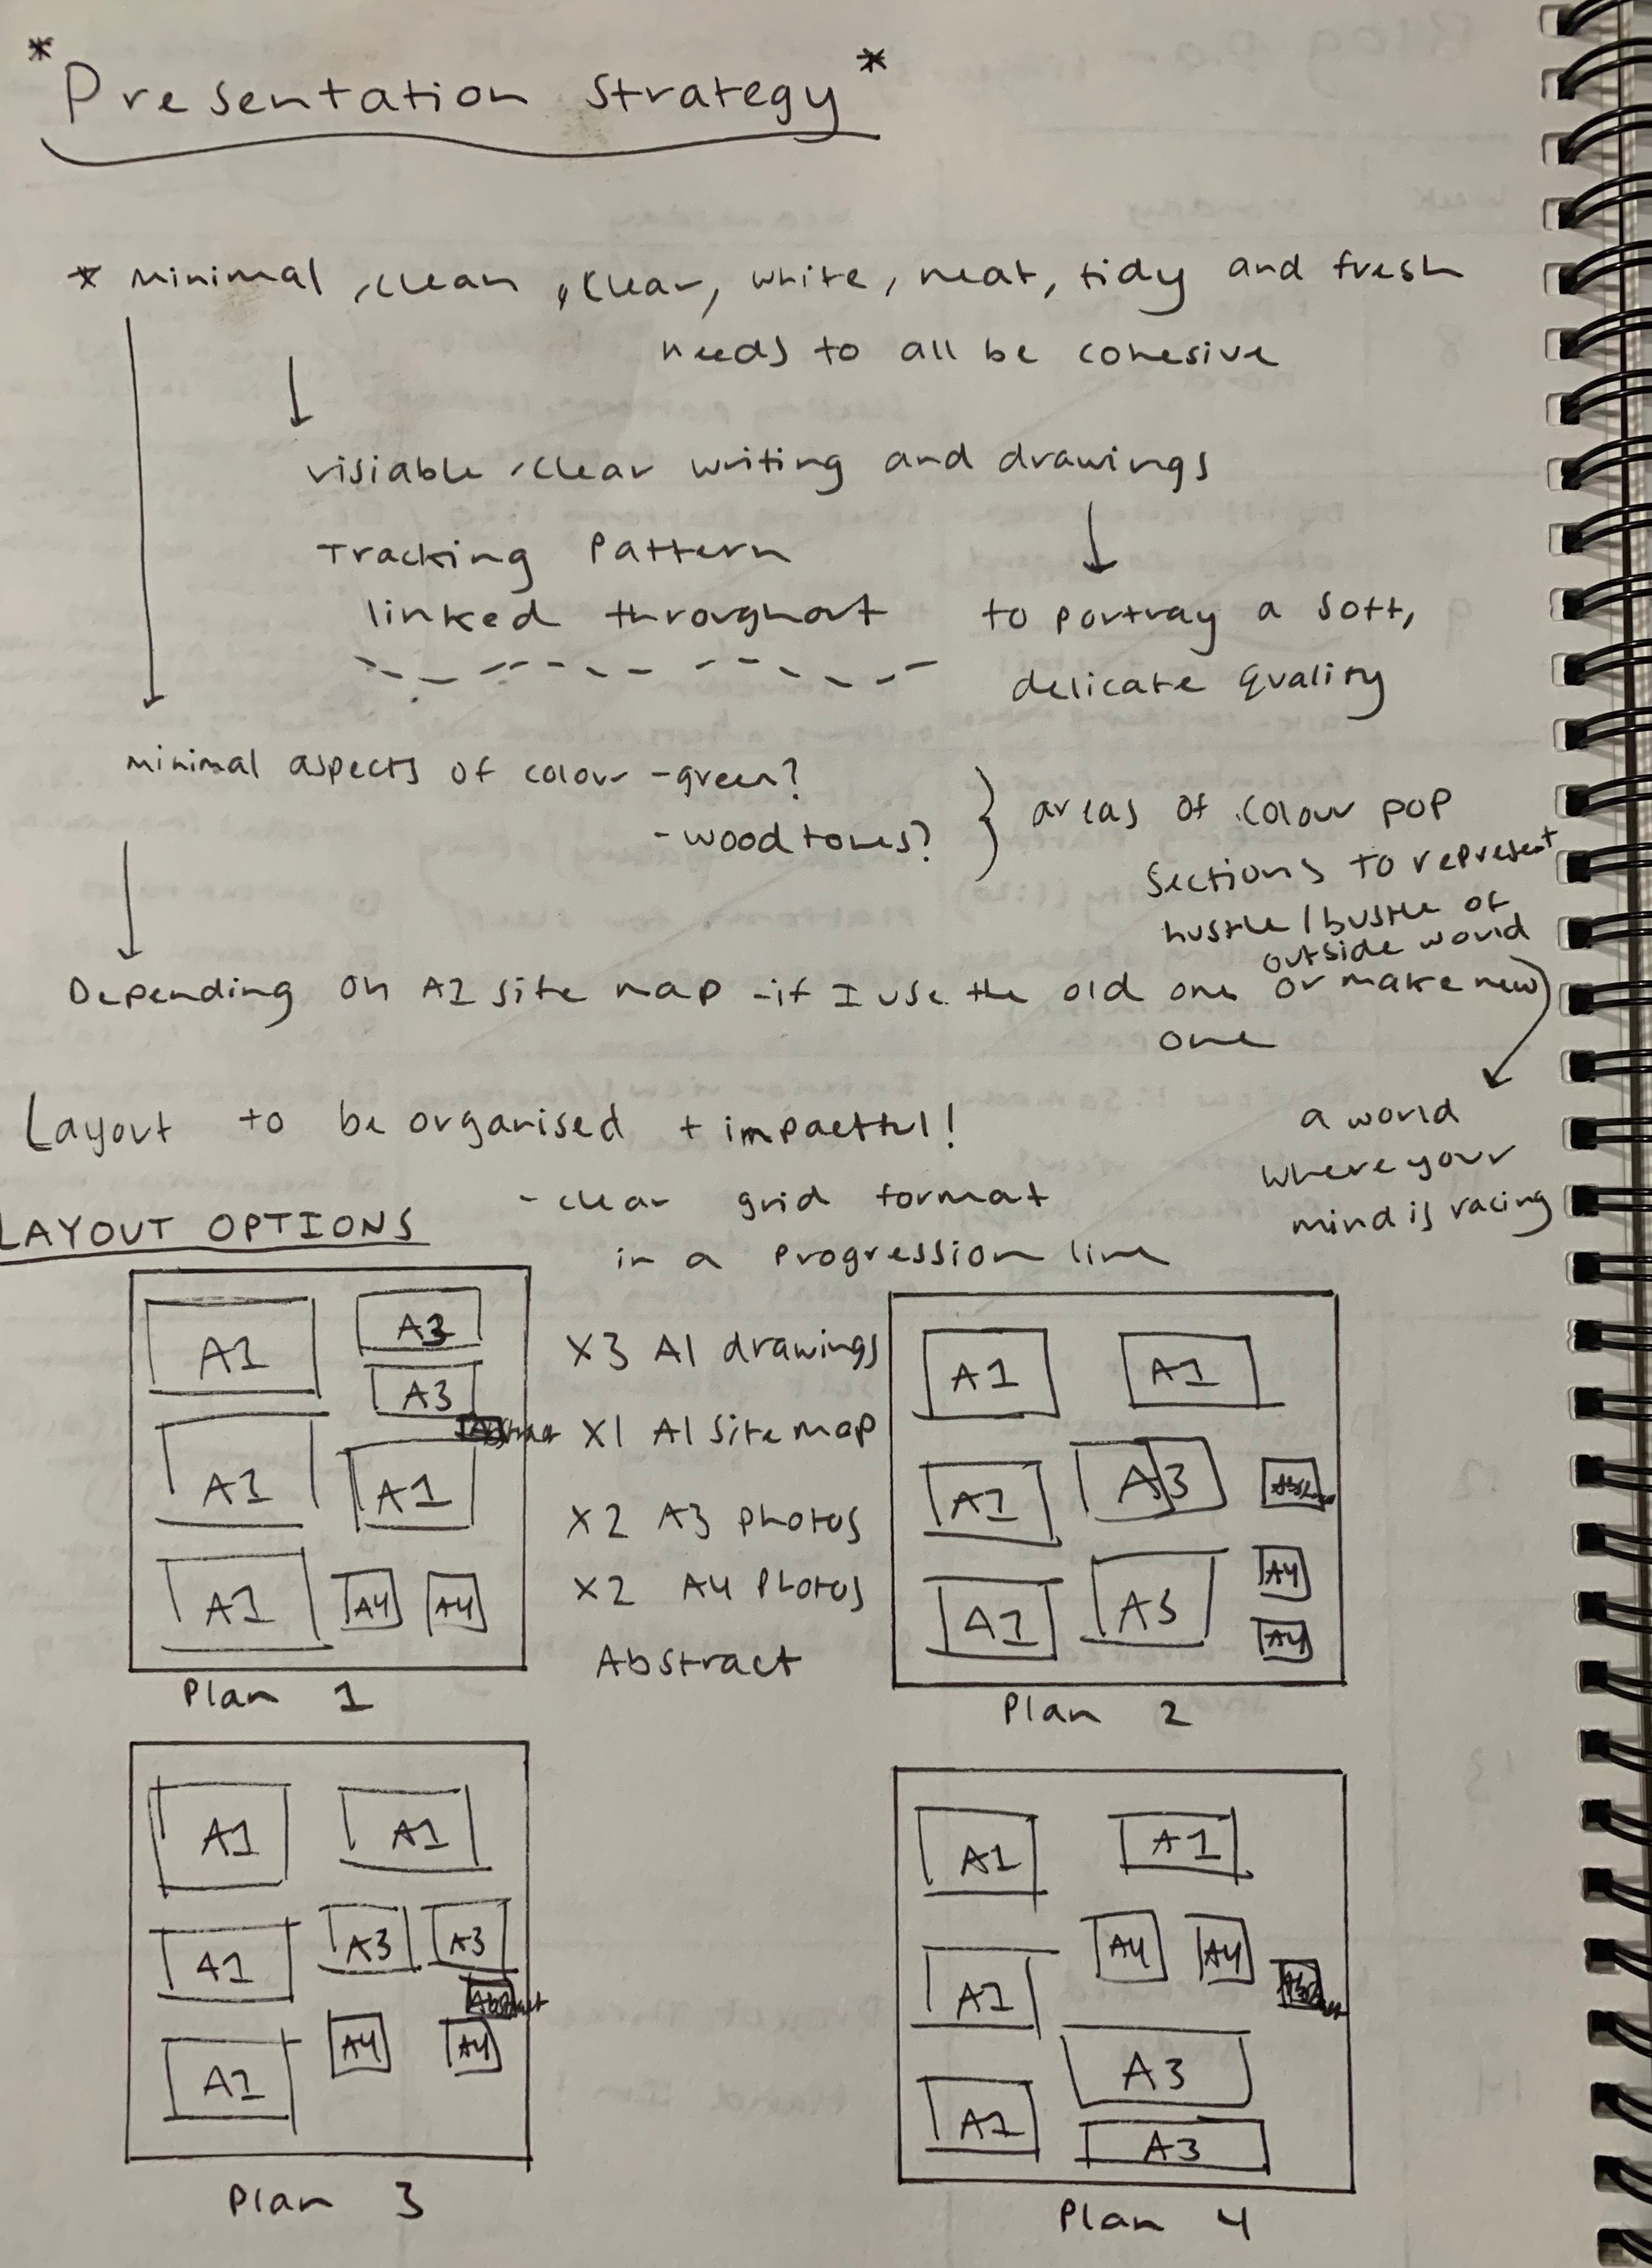 * Presentation Strategy *
* minimal, clean, clear, white, neat, tidy and fresh
needs to all be cohesive
visiable, clear writing and drawings
Tracking Pattern
linked throughout
to portray a soft,
delicate quality
minimal aspects of colour - green?
- wood tones?
} areas of colour pop
sections to represent
hustle / bustle of
outside world
Depending on A1 site map - if I use the old one or make new
one
a world
where your
mind is racing
Layout to be organised + impactful!
- clear grid format
in a progression line
LAYOUT OPTIONS
A1 A3
A3
Abstract
A1 A1
A1 A4 A4
Plan 1
X3 A1 drawings
X1 A1 site map
X2 A3 photos
X2 A4 Photos
Abstract
A1 A1
A1 A3
A1 A3 A4
A4
Plan 2
A1 A1
A1 A3 A3
Abstract
A1 A4 A4
Plan 3
A1 A1
A1 A4 A4
A3
A1 A3
Plan 4